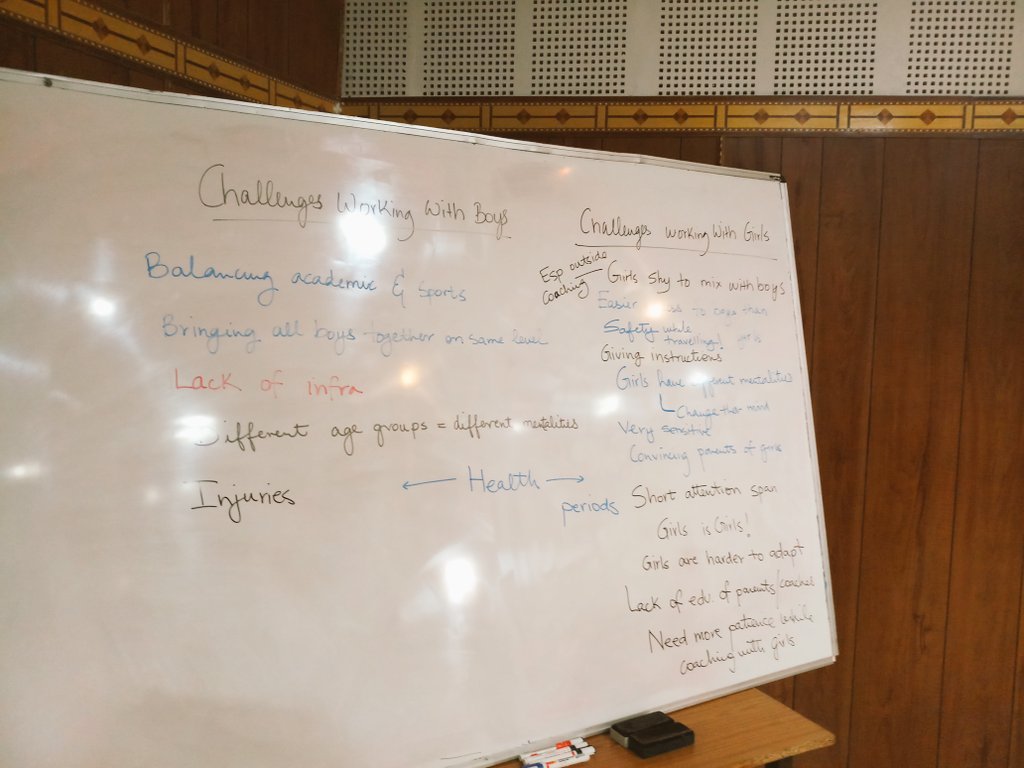 Challenges Working With Boys
Balancing academic & Sports
Bringing all boys together on same level
Lack of infra
Different age groups = different mentalities
Injuries
← Health →
periods
Challenges Working With Girls
Esp outside
coaching
Girls Shy to mix with boys
Easier to boys than
girls
Safety while
travelling!
Giving instructions
Girls have different mentalities
Change their mind
Very sensitive
Convincing parents of girls
Short attention span
Girls is Girls!
Girls are harder to adapt
Lack of edu. of parents/coaches
Need more patience while
coaching with girls